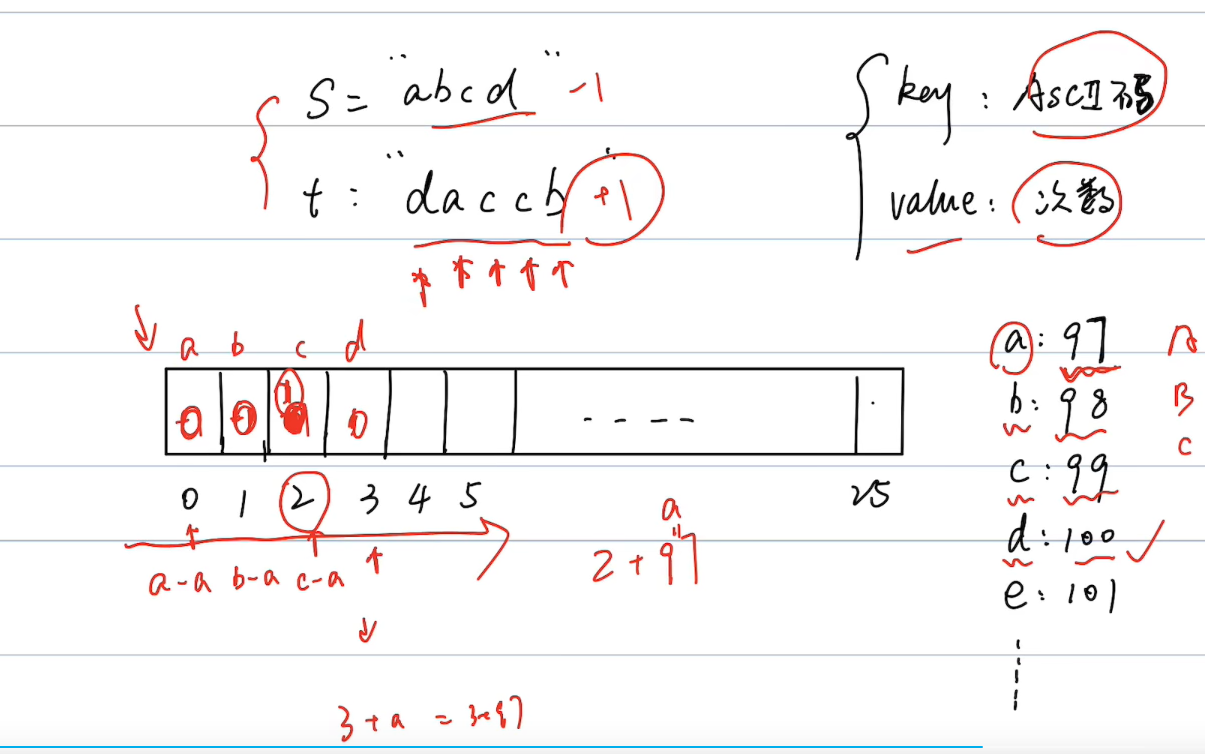 S = "abcd" -1
t : "daccb" +1
key : ASCII码
value : 次数
a b c d
0 0 1 0
0 1 2 3 4 5 25
a-a b-a c-a
a
"
2 + 97
3 + a = 3+97
a : 97 A
b : 98 B
c : 99 C
d : 100 ✓
e : 101